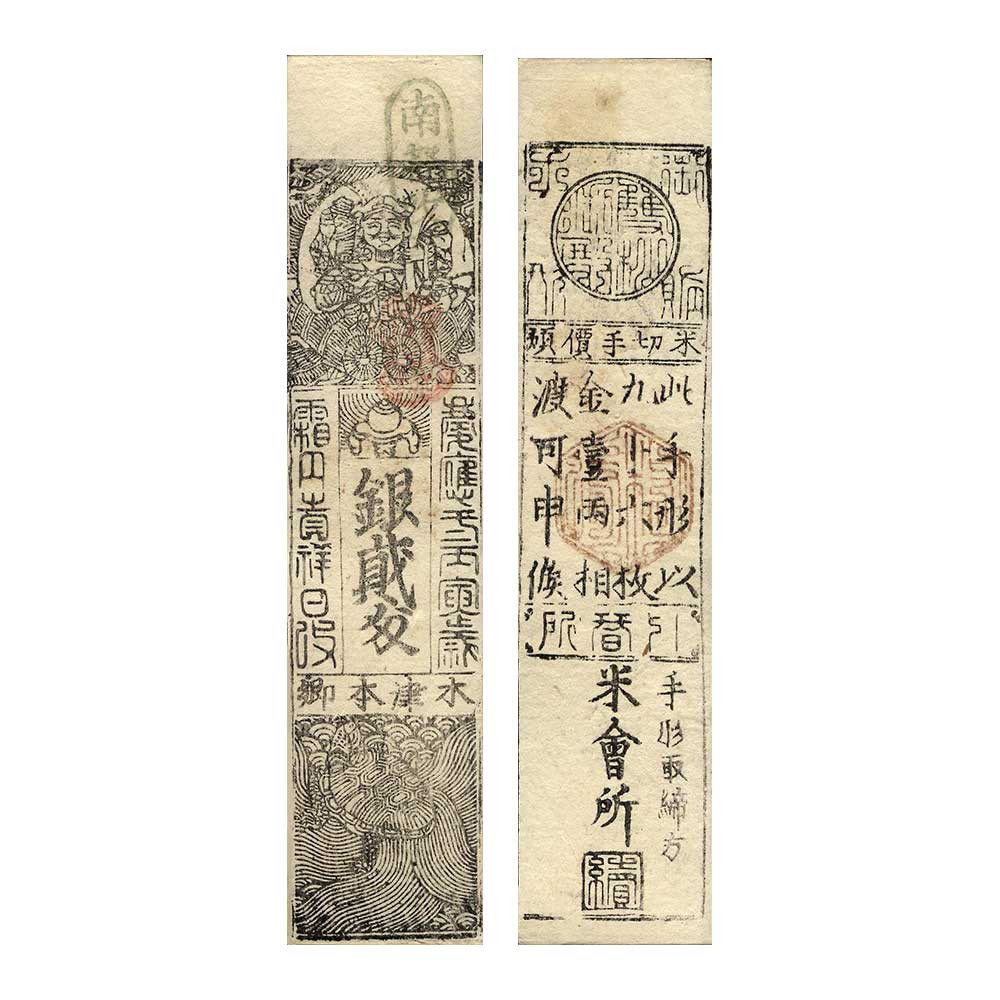 南
慶應
丙寅歳
銀貳匁
霜月吉祥日改
木津本郷
御
米切手價
此手形以
九十六枚
金壹両相
渡可申候
引替所
手形取締方
米會所
續